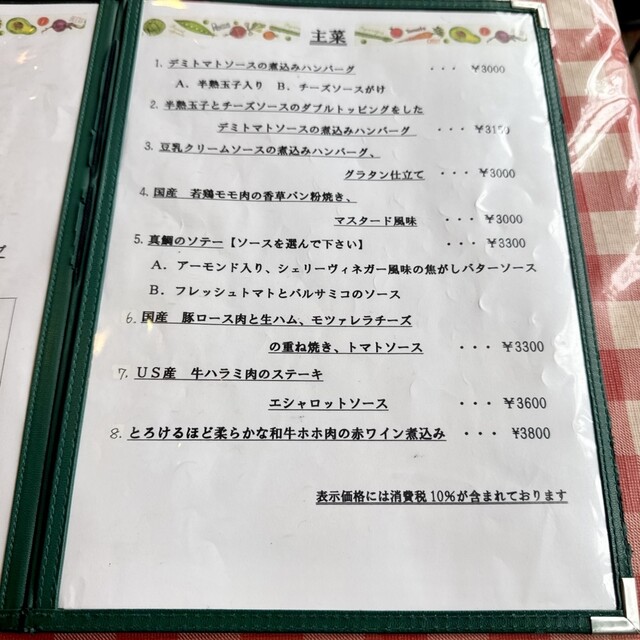 主菜
1. デミトマトソースの煮込みハンバーグ ・・・ ¥3000
A．半熟玉子入り B．チーズソースがけ
2. 半熟玉子とチーズソースのダブルトッピングをした
デミトマトソースの煮込みハンバーグ ・・・
3. 豆乳クリームソースの煮込みハンバーグ、
グラタン仕立て ・・・ ¥3000
4. 国産 若鶏モモ肉の香草パン粉焼き、
マスタード風味 ・・・ ¥3000
5. 真鯛のソテー【ソースを選んで下さい】 ・・・ ¥3300
A．アーモンド入り、シェリーヴィネガー風味の焦がしバターソース
B．フレッシュトマトとバルサミコのソース
6. 国産 豚ロース肉と生ハム、モツァレラチーズ
の重ね焼き、トマトソース ・・・ ¥3300
7. ＵＳ産 牛ハラミ肉のステーキ
エシャロットソース ・・・ ¥3600
8. とろけるほど柔らかな和牛ホホ肉の赤ワイン煮込み ・・・ ¥3800
表示価格には消費税10%が含まれております